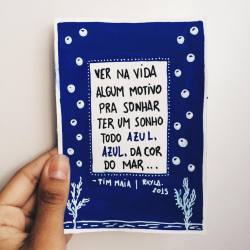 VER NA VIDA
ALGUM MOTIVO
PRA SONHAR
TER UM SONHO
TODO AZUL,
AZUL, DA COR
DO MAR...
- TIM MAIA | RAYLA.
2015